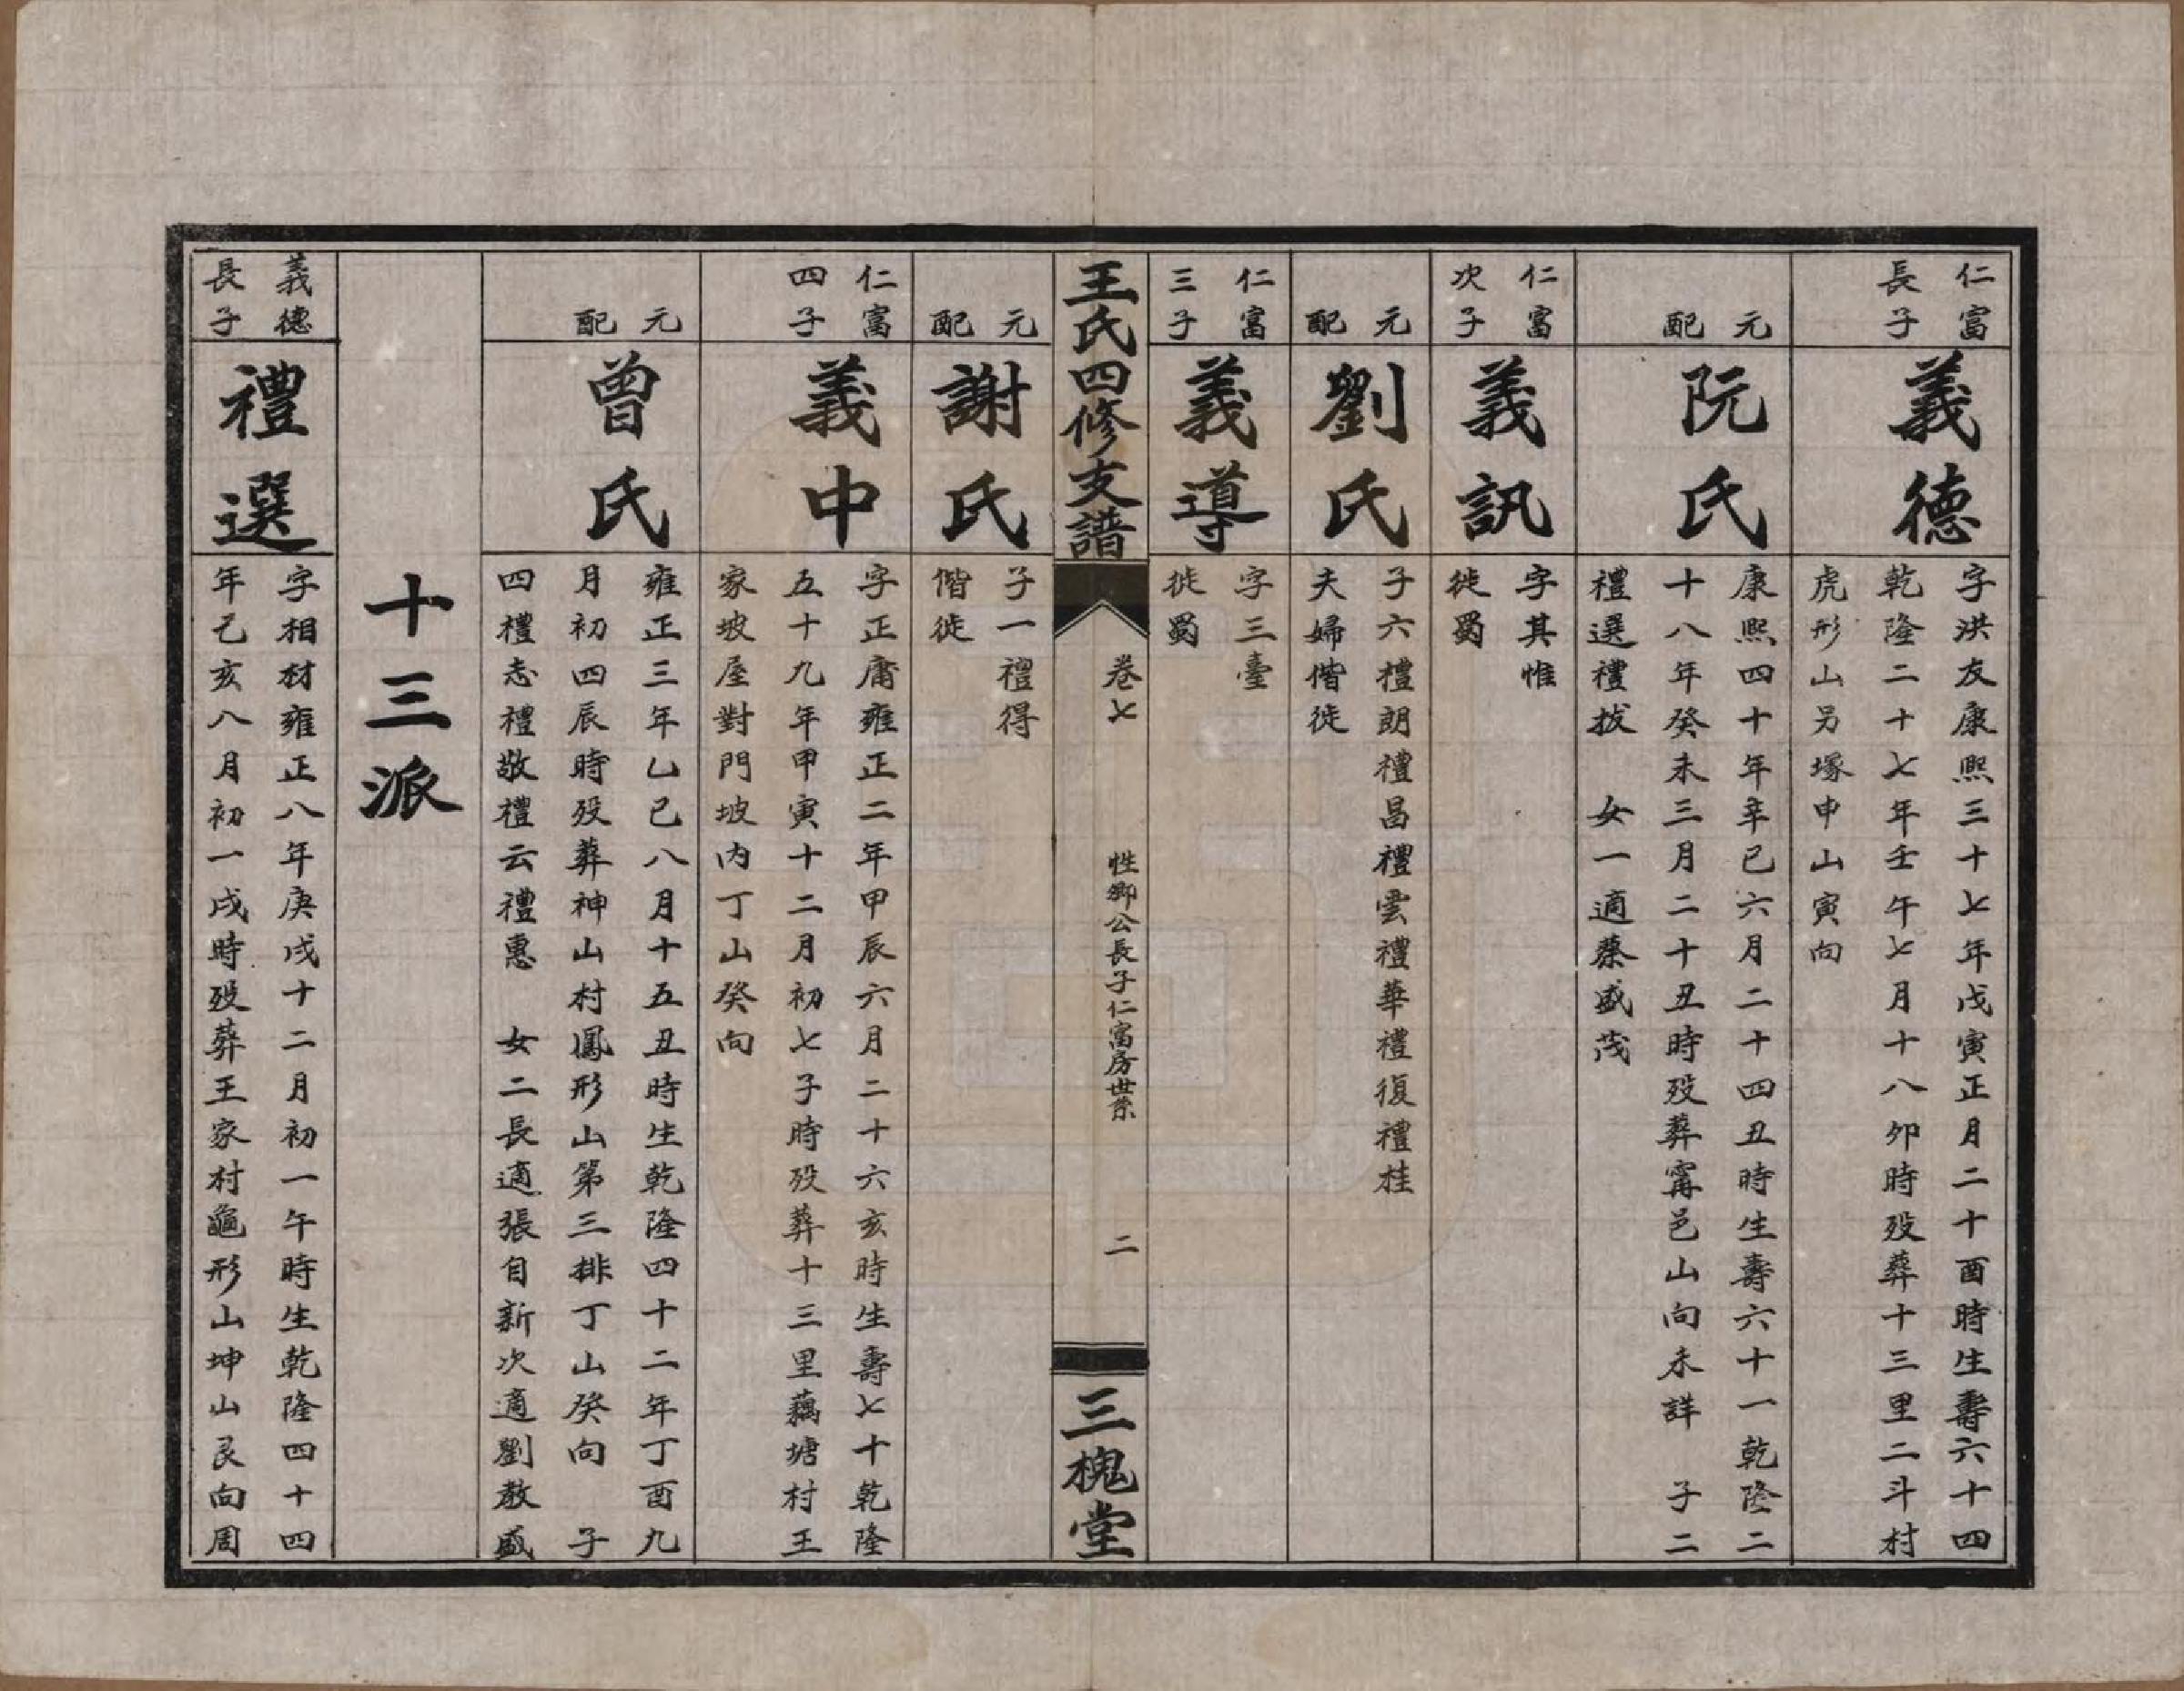 仁富
長子
義德
字洪友康熙三十七年戊寅正月二十酉時生壽六十四
乾隆二十七年壬午七月十八卯時歿葬十三里二斗村
虎形山另塚申山寅向
元
配
阮氏
康熙四十年辛巳六月二十四丑時生壽六十一乾隆二
十八年癸未三月二十丑時歿葬甯邑山向未詳　子二
禮選禮拔　女一適蔡盛茂
仁富
次子
義訊
字其惟
徙蜀
元
配
劉氏
子六禮朗禮昌禮雲禮華禮復禮桂
夫婦偕徙
仁富
三子
義導
字三臺
徙蜀
王氏四修支譜
卷七
性卿公長子仁富房世系
二
三槐堂
元
配
謝氏
子一禮得
偕徙
仁富
四子
義中
字正庸雍正二年甲辰六月二十六亥時生壽七十乾隆
五十九年甲寅十二月初七子時歿葬十三里藕塘村王
家坡屋對門坡內丁山癸向
元
配
曾氏
雍正三年乙巳八月十五丑時生乾隆四十二年丁酉九
月初四辰時歿葬神山村鳳形山第三排丁山癸向　子
四禮志禮敬禮云禮惠　女二長適張自新次適劉教盛
十三派
義德
長子
禮選
字相材雍正八年庚戌十二月初一午時生乾隆四十四
年己亥八月初一戌時歿葬王家村龜形山坤山艮向周